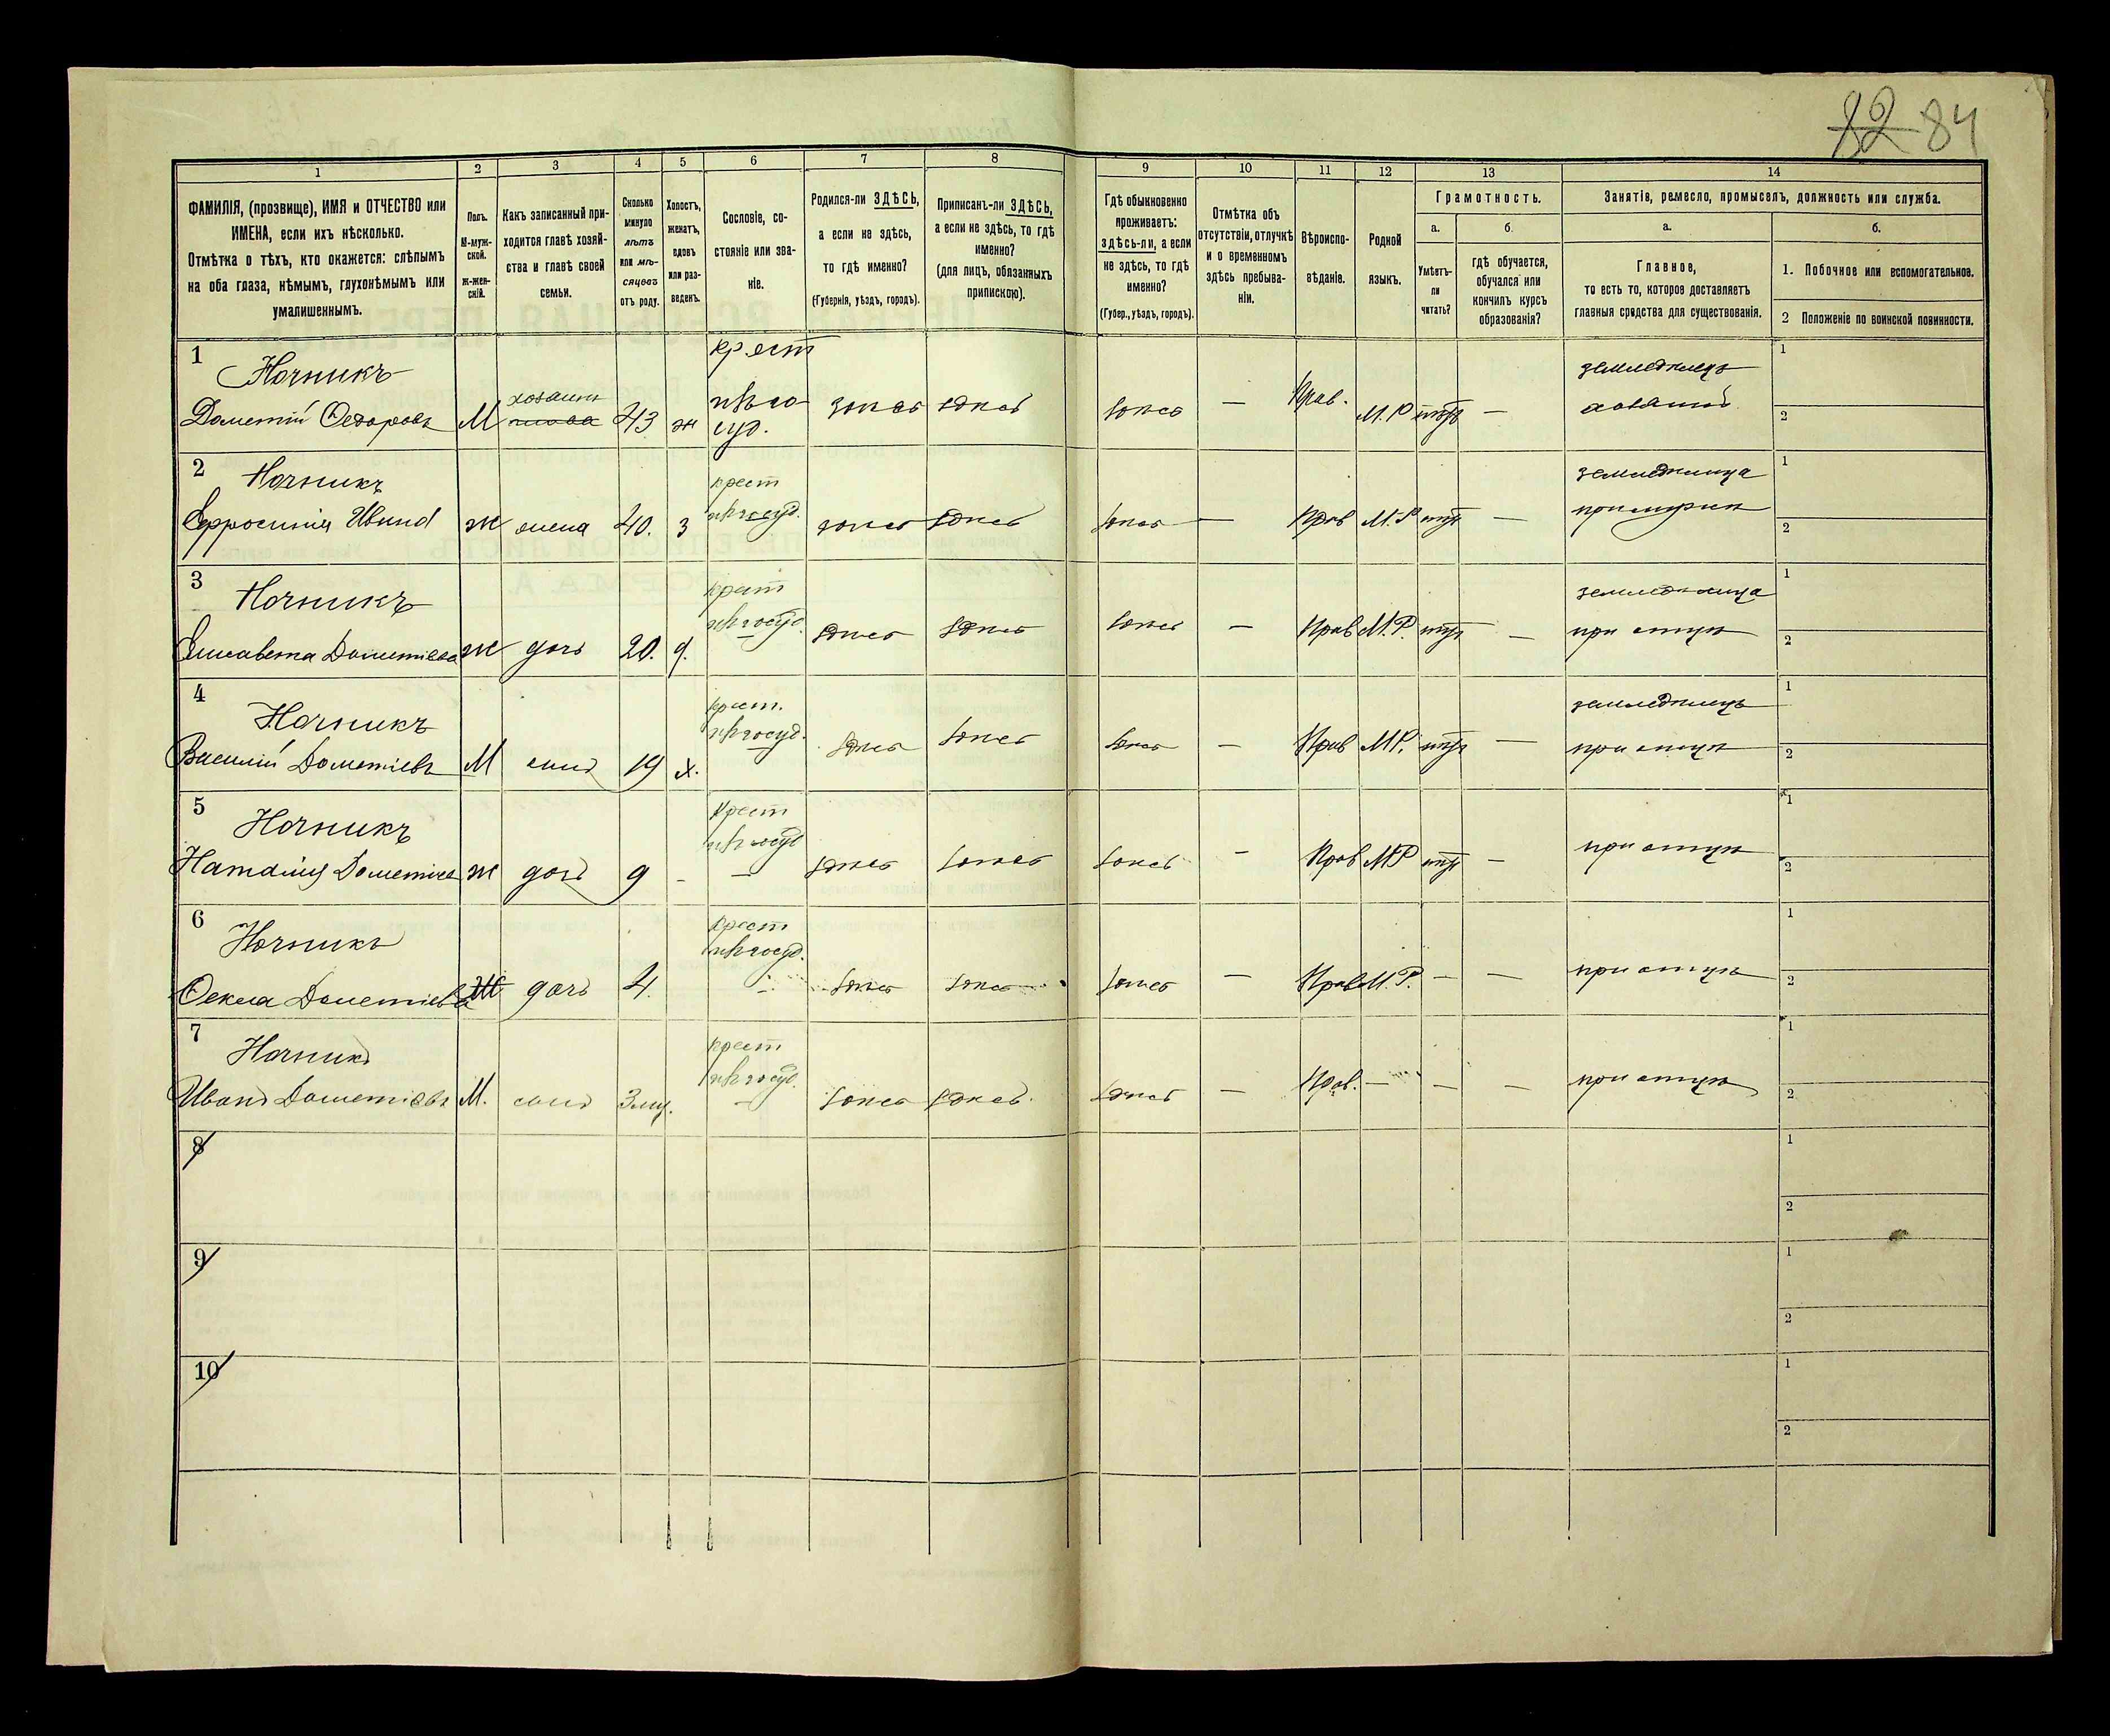 82 84
1 2 3 4 5 6 7 8 9 10 11 12 13 14
ФАМИЛІЯ, (прозвище), ИМЯ и ОТЧЕСТВО или
ИМЕНА, если ихъ нѣсколько.
Отмѣтка о тѣхъ, кто окажется: слѣпымъ
на оба глаза, нѣмымъ, глухонѣмымъ или
умалишеннымъ.
Полъ.
М-муж-
ской.
ж-жен-
скій.
Какъ записанный при-
ходится главѣ хозяй-
ства и главѣ своей
семьи.
Сколько
минуло
лѣтъ
или мѣ-
сяцевъ
отъ роду.
Холостъ,
женатъ,
вдовъ
или раз-
веденъ.
Сословіе, со-
стояніе или зва-
ніе.
Родился-ли ЗДѢСЬ,
а если не здѣсь,
то гдѣ именно?
(Губернія, уѣздъ, городъ).
Приписанъ-ли ЗДѢСЬ,
а если не здѣсь, то гдѣ
именно?
(для лицъ, обязанныхъ
припискою).
Гдѣ обыкновенно
проживаетъ:
здѣсь-ли, а если
не здѣсь, то гдѣ
именно?
(Губер., уѣздъ, городъ).
Отмѣтка объ
отсутствіи, отлучкѣ
и о временномъ
здѣсь пребыва-
ніи.
Вѣроиспо-
вѣданіе.
Родной
языкъ.
Грамотность.
а.
Умѣетъ-
ли
читать?
б.
гдѣ обучается,
обучался или
кончилъ курсъ
образованія?
Занятіе, ремесло, промыселъ, должность или служба.
а.
Главное,
то есть то, которое доставляетъ
главныя средства для существованія.
б.
1. Побочное или вспомогательное.
2 Положеніе по воинской повинности.
1 Ночникъ крест земледѣлецъ 1
Дометій Ѳедоровъ М хозяинъ 43 ж здѣсь здѣсь здѣсь — Прав. М.Р — 2
2 Ночникъ крест земледѣлица 1
Ефросинія Иванова ж жена 40. з здѣсь здѣсь здѣсь — Прав М.Р — 2
3 Ночникъ крест земледѣлица 1
Елисавета Дометіева ж дочь 20. д. здѣсь здѣсь здѣсь — Прав М.Р. — при отцѣ 2
4 Ночникъ крест. земледѣлецъ 1
Василій Дометіевъ М сынъ 19 х. здѣсь здѣсь здѣсь — Прав МР. — при отцѣ 2
5 Ночникъ крест 1
Наталія Дометіева ж дочь 9 - здѣсь здѣсь здѣсь — Прав МР — при отцѣ 2
6 Ночникъ крест 1
Ѳекла Дометіева Ж дочь 4. здѣсь здѣсь здѣсь — Прав М.Р. — — при отцѣ 2
7 Ночникъ крест 1
Иванъ Дометіевъ М. сынъ 3 мц. здѣсь здѣсь здѣсь — Прав. — — — при отцѣ 2
8 1
2
9 1
2
10 1
2